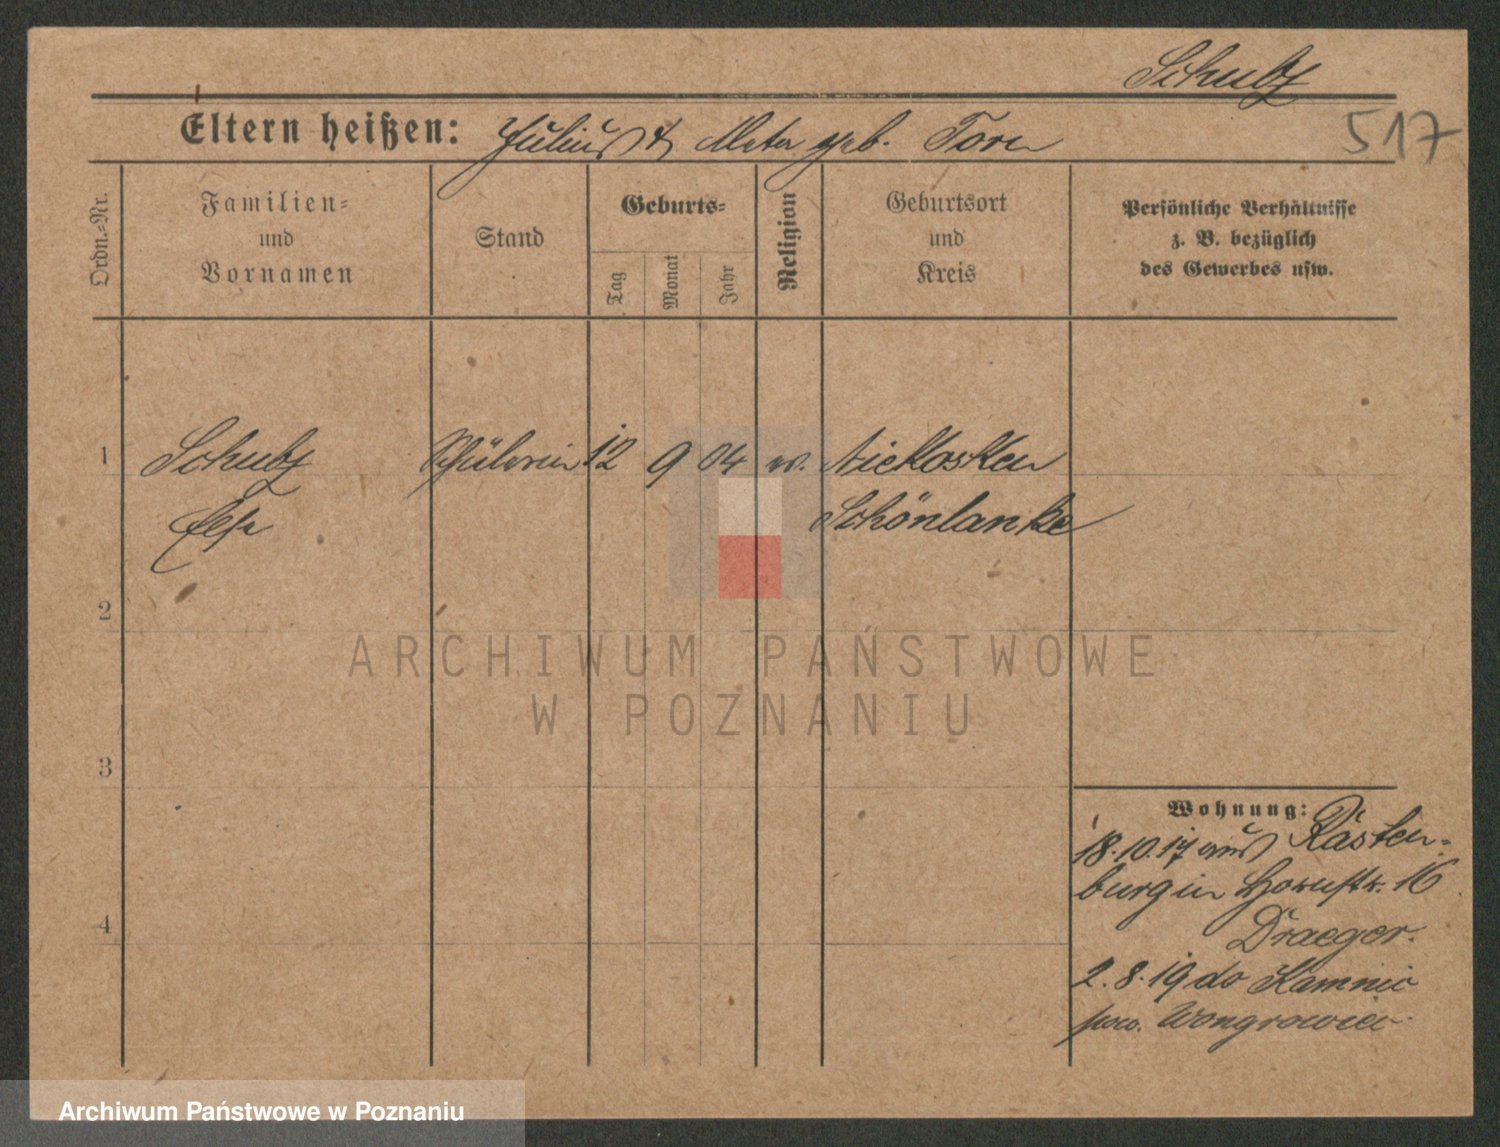 Schulz
Eltern heißen: Julius & Meta geb. Torn
517
Ordn.-Nr.
Familien-
und
Vornamen
Stand
Geburts-
Tag
Monat
Jahr
Religion
Geburtsort
und
Kreis
Persönliche Verhältnisse
z. B. bezüglich
des Gewerbes usw.
1
Schulz Schülerin 12 9 04 ev. Niekosken
Schönlanke
2
3
4
Wohnung:
18.10.17 aus Rasten-
burg in 16
Draeger.
2.8.19 do Kamnic
pow. Wongrowiec
ARCHIWUM PAŃSTWOWE
W POZNANIU
Archiwum Państwowe w Poznaniu